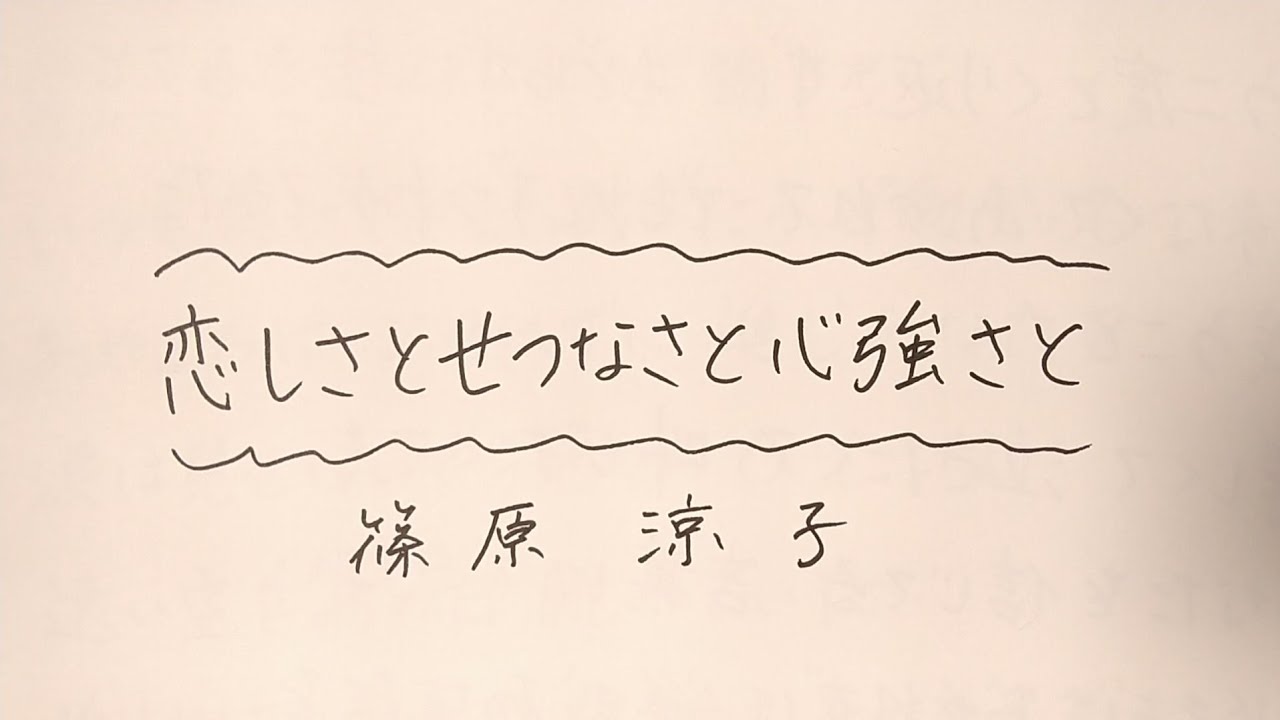 恋しさとせつなさと心強さと
篠原 涼子